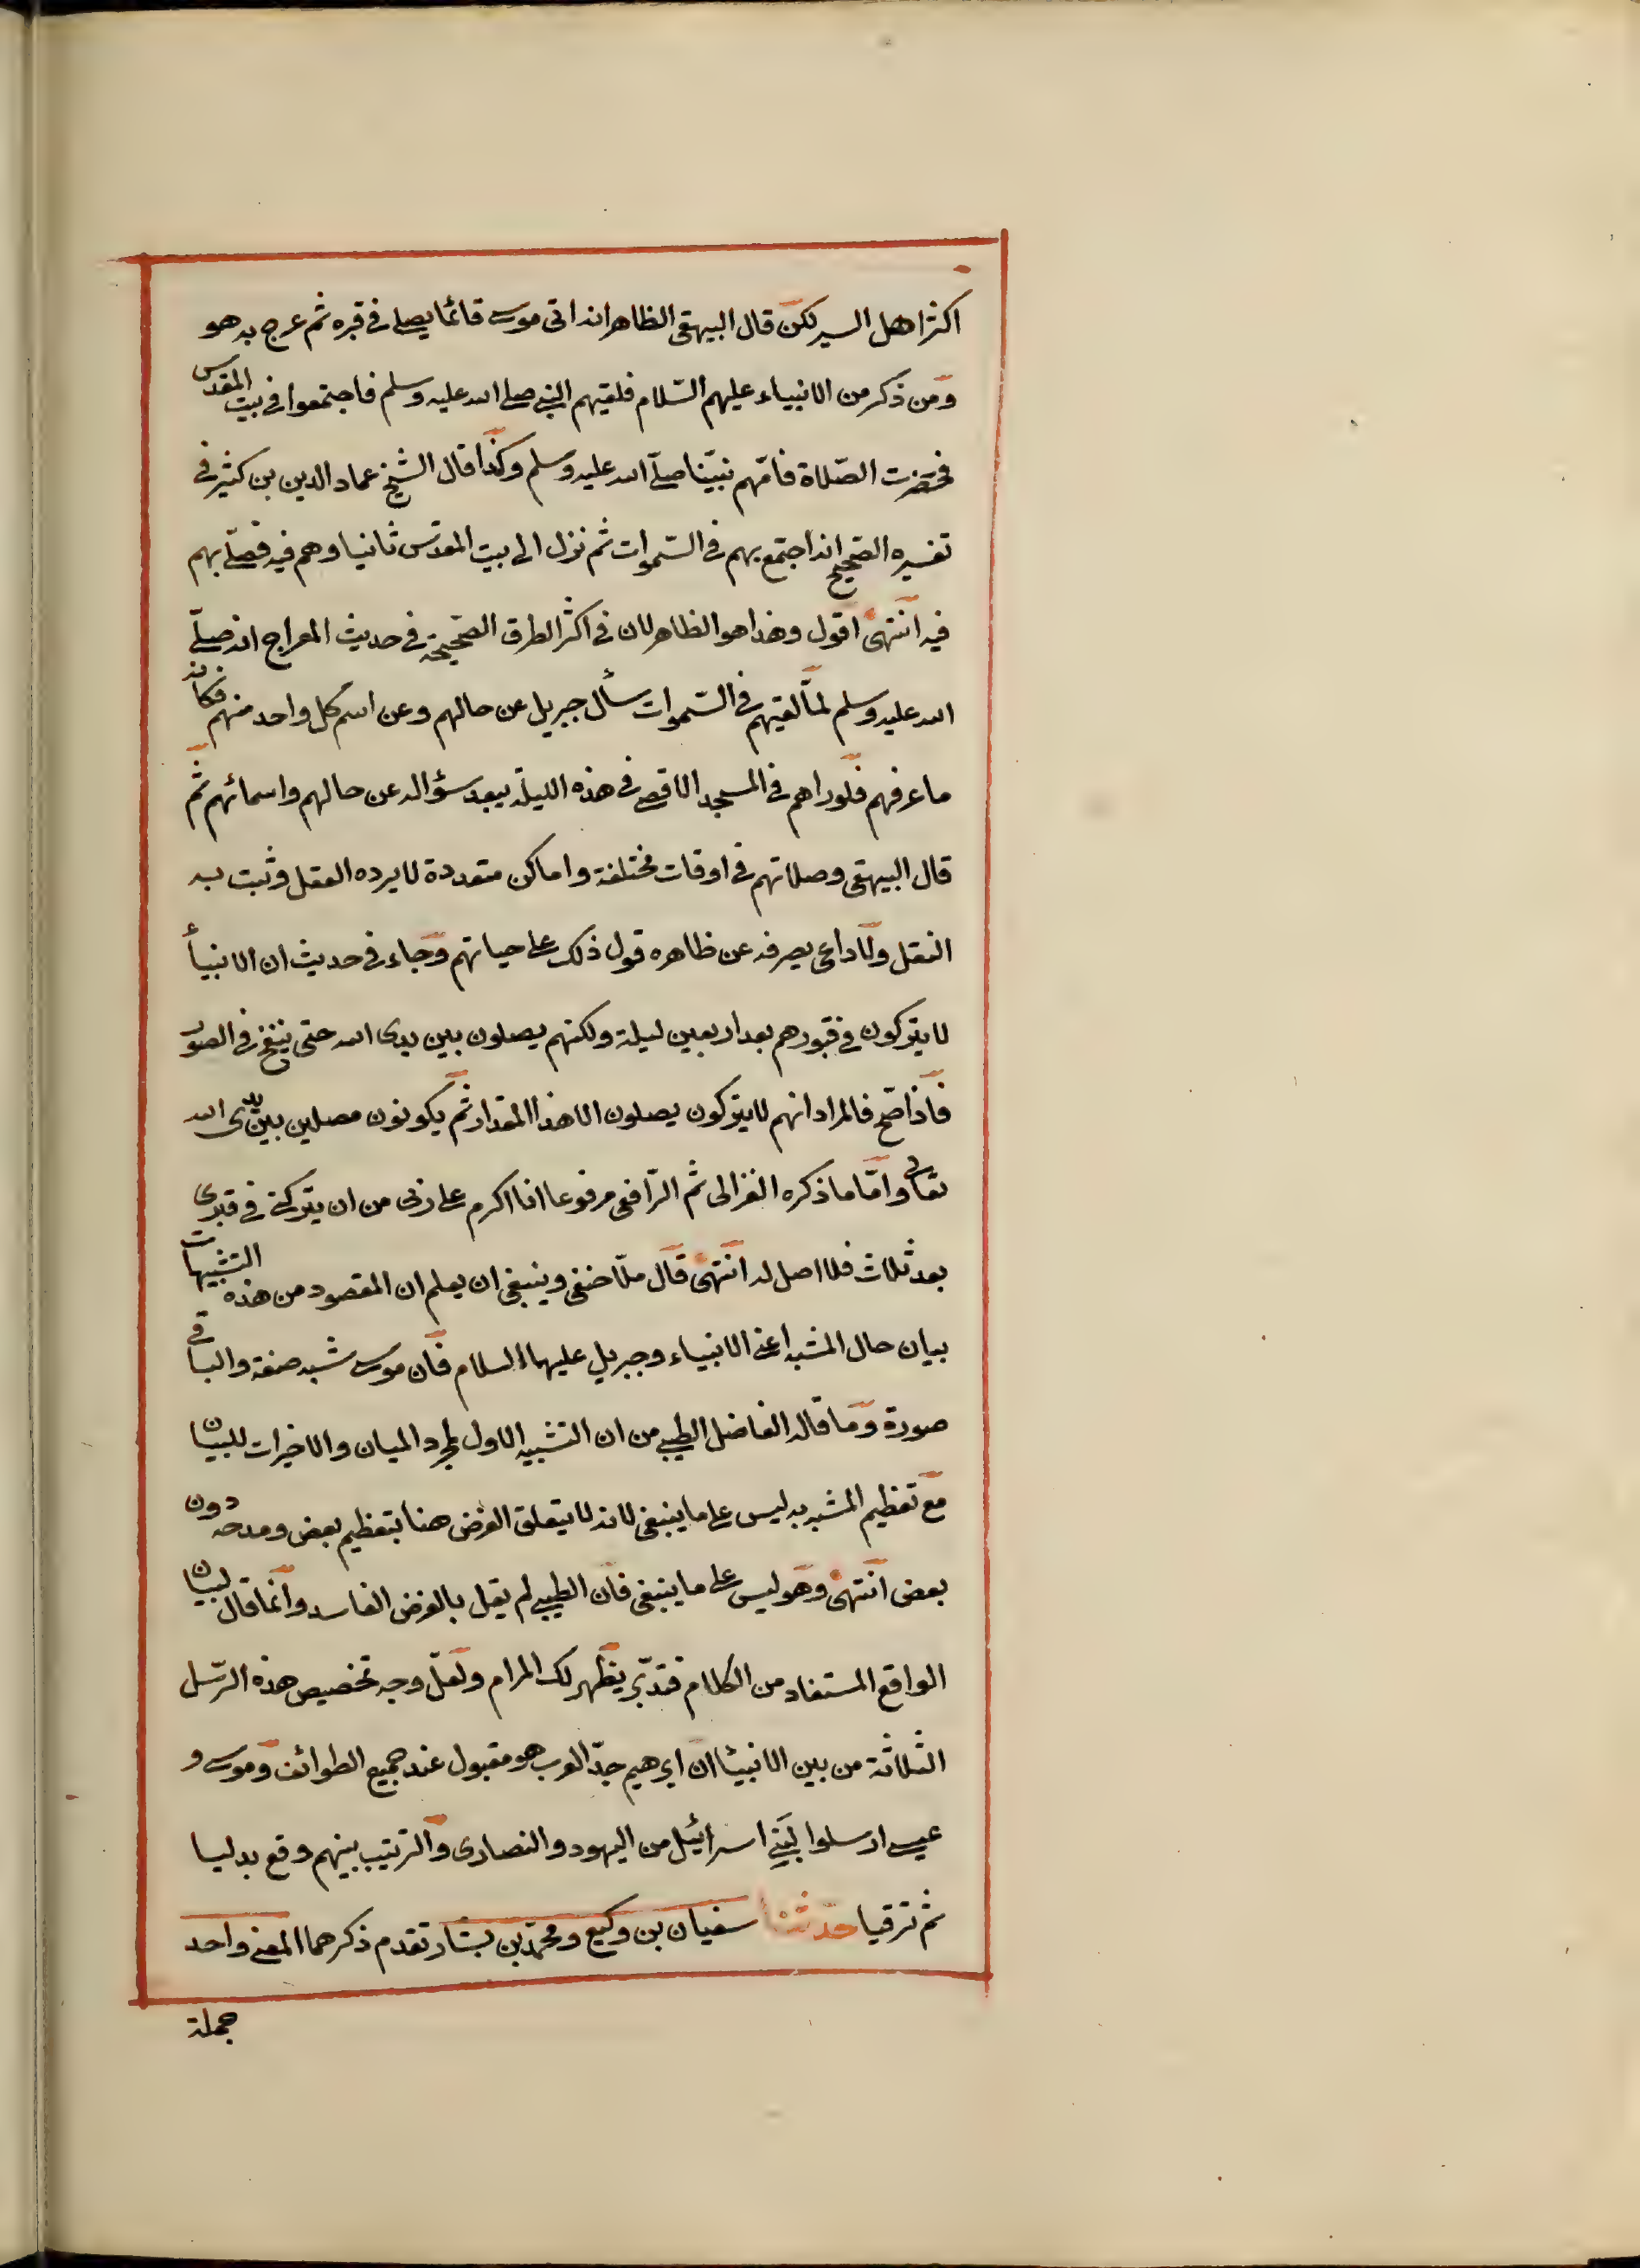 اكثر اهل السير لكن قال البيهقى الظاهر انه اتى موسى قائما يصلى فى قبره ثم عرج به هو
ومن ذكر من الانبياء عليهم السّلام فلقيهم النبى صلى الله عليه وسلم فاجتمعوا فى بيت المقدس
فحضرت الصّلاة فامّهم نبيّنا صلّى الله عليه وسلم وكذا قال الشيخ عماد الدين بن كثير فى
تفسيره الصّحيح انه اجتمع بهم فى السّموات ثم نزل الى بيت المقدّس ثانيا وهم فيه فصلّى بهم
فيه انتهى اقول وهذا هو الظاهر لان فى اكثر الطرق الصّحيحة فى حديث المعراج انه صلّى
الله عليه وسلم لمّا لقيهم فى السّموات سأل جبريل عن حالهم وعن اسم كل واحد منهم فكانه
ما عرفهم فلو راهم فى المسجد الاقصى فى هذه الليلة يبعد سؤاله عن حالهم واسمائهم ثم
قال البيهقى وصلاتهم فى اوقات مختلفة واماكن متعددة لا يرده العقل وثبت به
النقل ولا داعى يصرفه عن ظاهره قول ذلك على حياتهم وجاء فى حديث ان الانبيأ
لا يتركون فى قبورهم بعد اربعين ليلة ولكنهم يصلون بين يدى الله حتى ينفخ فى الصور
فاذا صّح فالمراد انهم لا يتركون يصلون الا هذا المقدار ثم يكونون مصلين بين يدى الله
تعالى وامّا ما ذكره الغزالى ثم الرّافعى مرفوعا انا اكرم على ربى من ان يتركنى فى قبرى
بعد ثلاث فلا اصل له انتهى قال ملّا حنفى وينبغى ان يعلم ان المقصود من هذه التشبيهات
بيان حال المشبه اعنى الانبياء وجبريل عليهم السلام فان موسى شبه صفة والباقى
صورة وما قاله الفاضل الطيبى من ان التشبيه الاول لمجرد الميان والاخيرات للبيان
مع تعظيم المشبه به ليس على ما ينبغى لانه لا يتعلق الغرض هنا بتعظيم بعض ومدحه دون
بعض انتهى وهو ليس على ما ينبغى فان الطيبى لم يقل بالغرض الفاسد وانما قال لبيان
الواقع المستفاد من الكلام فتدبّر يظهر لك المرام ولعلّ وجه تخصيص هذه الرّسل
الثلاثة من بين الانبيئا ان ابرهيم جدّ العرب هو مقبول عند جميع الطوائف وموسى و
عيسى ارسلوا لبنى اسرائيل من اليهود والنصارى والترتيب بينهم وقع بدليا
ثم ترقيا حدثنا سفيان بن وكيع ومحمّد بن بشّار تقدم ذكرهما المعنى واحد
جملة